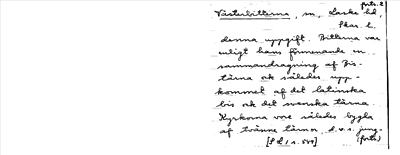 forts. 2
Västerbitterna, sn, Laske hd,
Skar. l.
denna uppgift. Bitterna var
enligt hans förmenande en
sammandragning af Bis-
tärna och således upp-
kommet af det latinska
bis och det svenska tärna.
Kyrkorna voro således bygda
af tvänne tärnor, d.v.s. jung-
(forts)